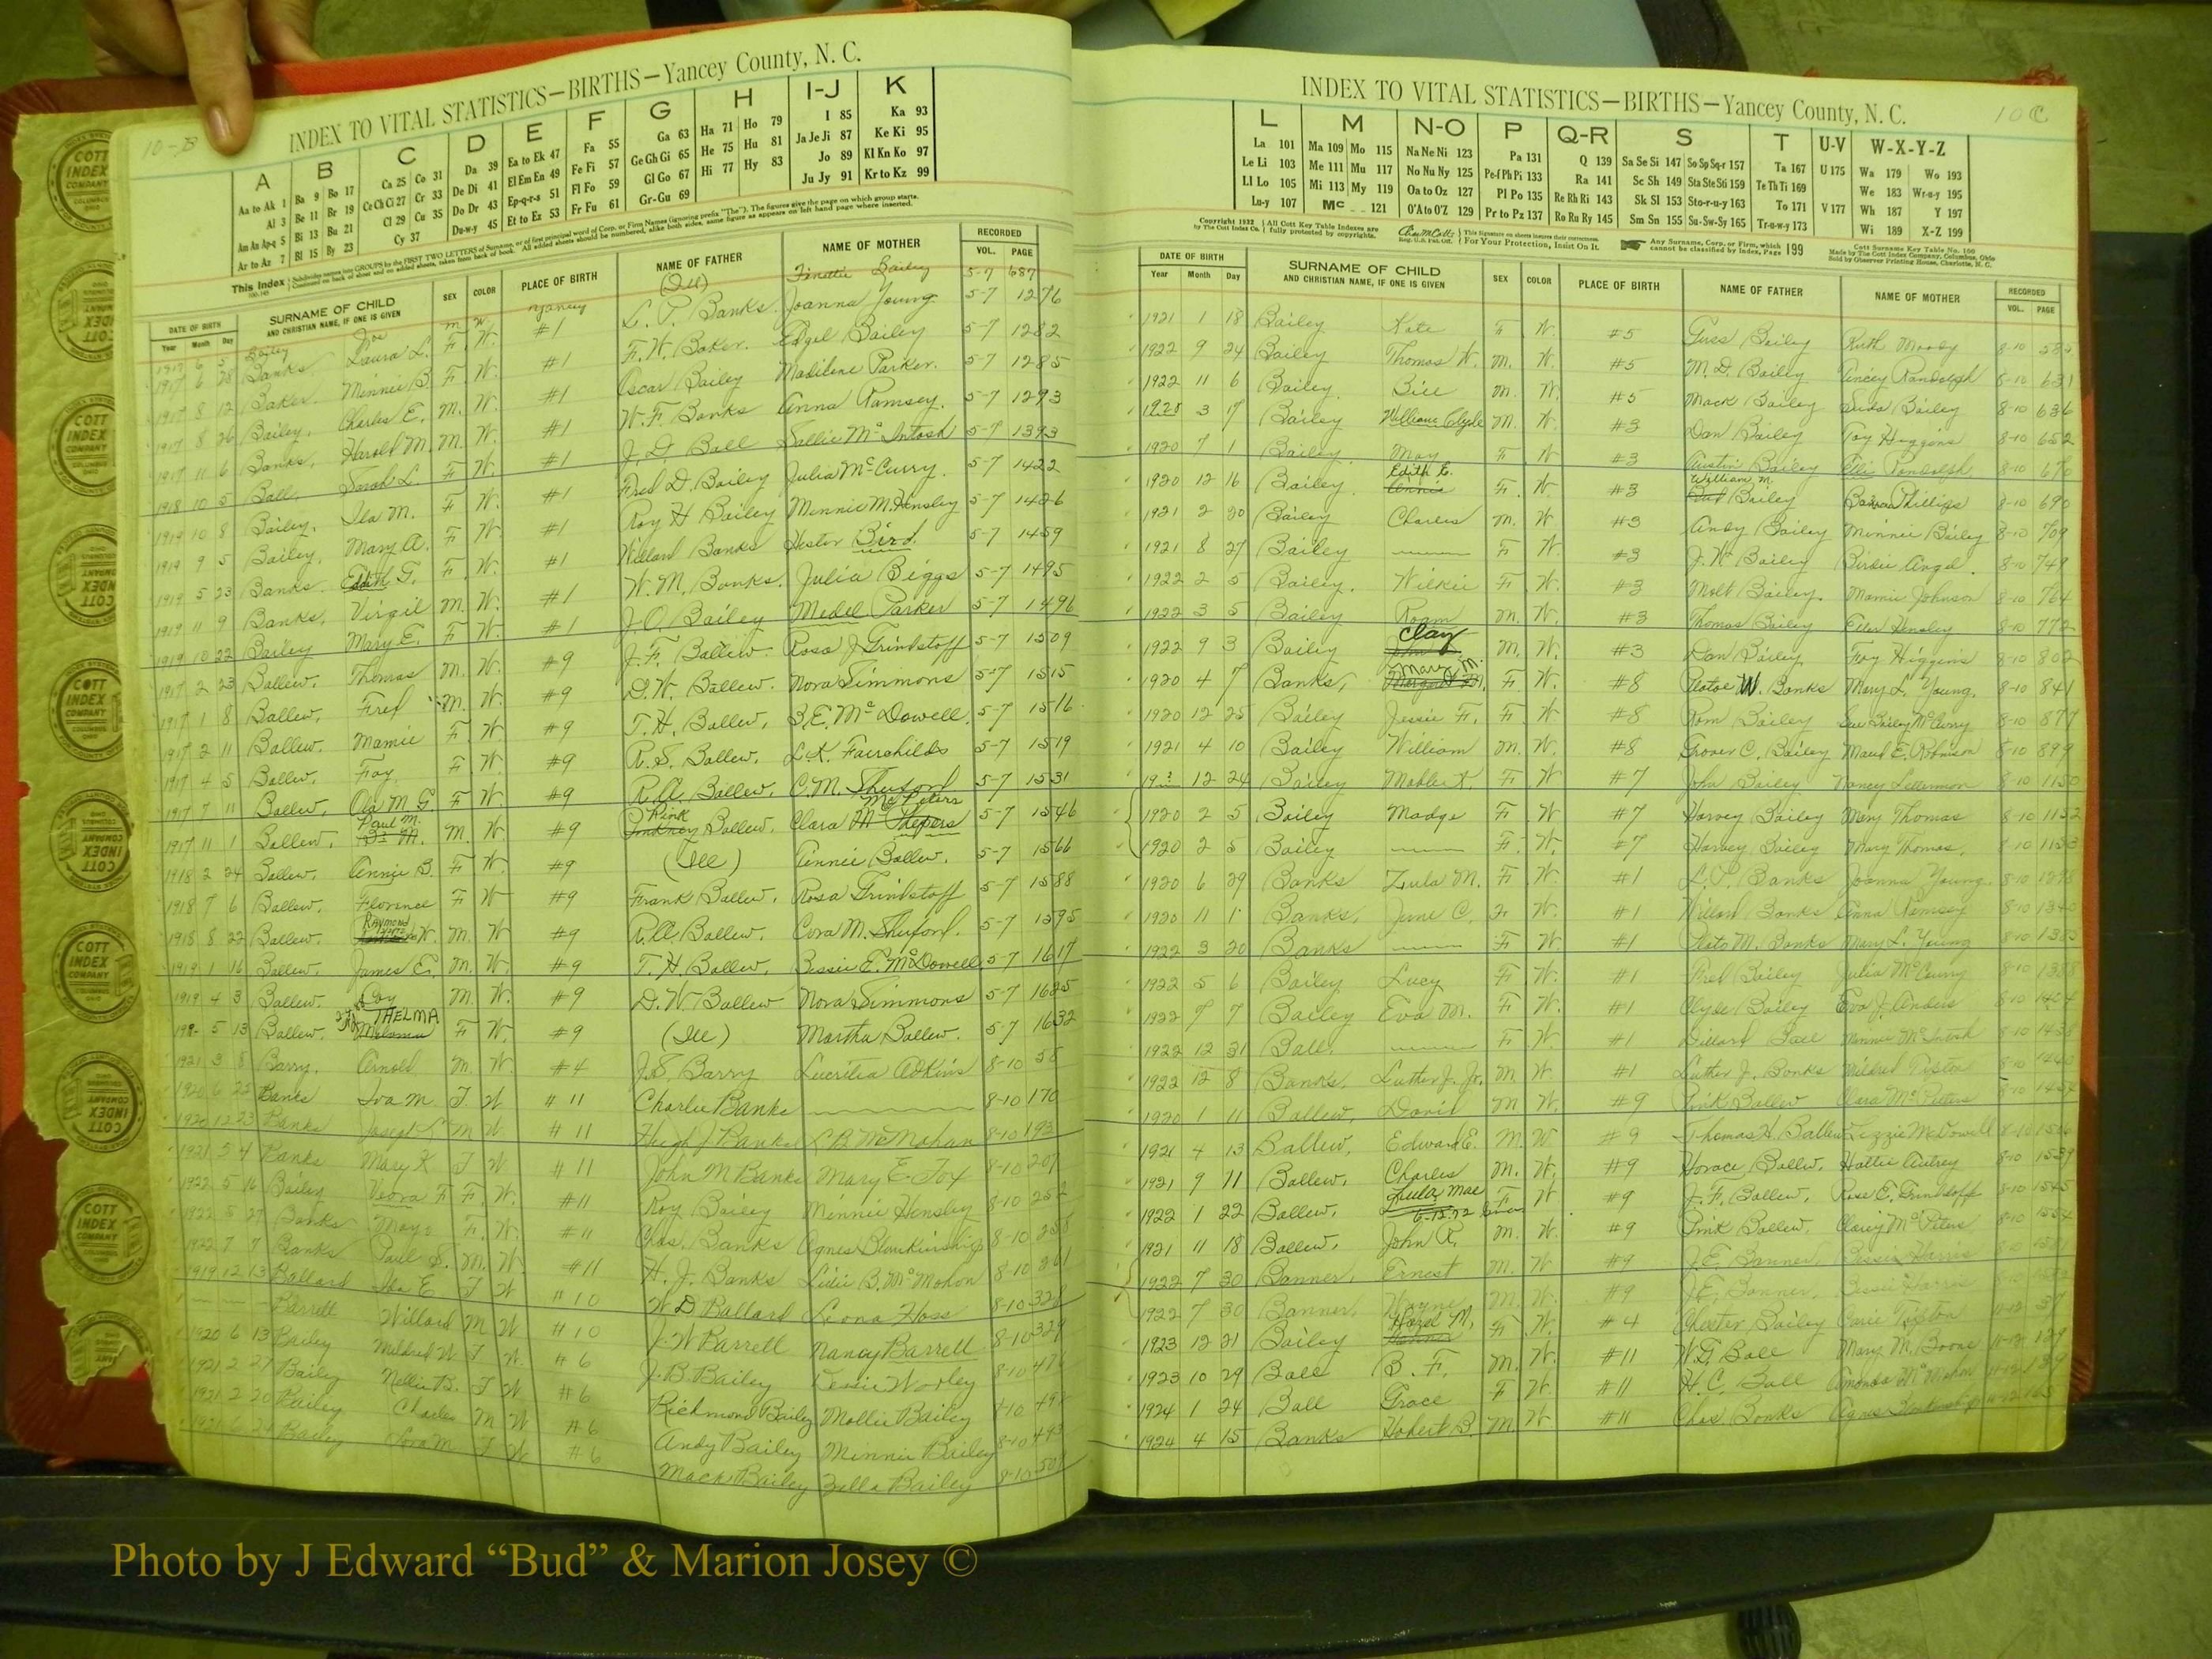 10-B
INDEX TO VITAL STATISTICS—BIRTHS—Yancey County, N. C.
A B C D E F G H I-J K
Aa to Ak 1 Ba 9 Bo 17 Ca 25 Co 31 Da 39 Ea to Ek 47 Fa 55 Ga 63 Ha 71 Ho 79 I 85 Ka 93
Al 3 Be 11 Br 19 Ce Ch Ci 27 Cr 33 De Di 41 El Em En 49 Fe Fi 57 Ge Gh Gi 65 He 75 Hu 81 Ja Je Ji 87 Ke Ki 95
Am An Ap-q 5 Bi 13 Bu 21 Cl 29 Cu 35 Do Dr 43 Ep-q-r-s 51 Fl Fo 59 Gl Go 67 Hi 77 Hy 83 Jo 89 Kl Kn Ko 97
Ar to Az 7 Bl 15 By 23 Cy 37 Du-w-y 45 Et to Ez 53 Fr Fu 61 Gr-Gu 69 Ju Jy 91 Kr to Kz 99
This Index Subdivides names into GROUPS by the FIRST TWO LETTERS of Surname, or of first principal word of Corp. or Firm Names (ignoring prefix "The"). The figures give the page on which group starts.
Continued on back of sheet and on added sheets, taken from back of book. All added sheets should be numbered, alike both sides, same figure as appears on left hand page where inserted.
DATE OF BIRTH SURNAME OF CHILD SEX COLOR PLACE OF BIRTH NAME OF FATHER NAME OF MOTHER RECORDED
Year Month Day AND CHRISTIAN NAME, IF ONE IS GIVEN VOL. PAGE
1917 6 5 Bailey Joe m w Yancey (Ill) Finettie Bailey 5-7 687
1917 6 28 Banks Laura L. F. W. #1 L. P. Banks. Joanna Young 5-7 1276
1917 8 12 Baker. Minnie B. F. W. #1 F. W. Baker. Edgel Bailey 5-7 1282
1917 8 26 Bailey, Charles E. M. W. #1 Oscar Bailey Madilene Parker. 5-7 1285
1917 11 6 Banks, Harold M. M. W. #1 W. F. Banks Anna Ramsey. 5-7 1293
1918 10 5 Ball, Sarah L. F. W. #1 J. D. Ball Sallie McIntosh 5-7 1393
1919 10 8 Bailey. Ila M. F. W. #1 Fred D. Bailey Julia McCurry. 5-7 1422
1919 9 5 Bailey, Mary A. F. W #1 Roy H Bailey Minnie M. Hensley 5-7 1426
1919 5 23 Banks. Edith G. F. W. #1 Willard Banks Hester Bird 5-7 1459
1919 11 9 Banks, Virgil M. W. #1 W. M. Banks. Julia Biggs 5-7 1495
1919 10 22 Bailey Mary E. F. W. #1 J. O. Bailey Medel Parker 5-7 1496
1917 2 23 Ballew. Thomas M. W. #9 J. F. Ballew. Rosa J Grindstoff 5-7 1509
1917 1 8 Ballew, Fred M. W. #9 D. W. Ballew. Nora Simmons 5-7 1515
1917 2 11 Ballew. Mamie F. W #9 T. H. Ballew, B. E. McDowell. 5-7 1516
1917 4 5 Ballew. Fay F. W. #9 R. S. Ballew. L. K. Fairchilds 5-7 1519
1917 7 11 Ballew, Ola M. G. F W. #9 R. A. Ballew, C. M. Shuford 5-7 1531
1917 11 1 Ballew, Paul M. M. W. #9 Pink Ballew. Clara McPeters 5-7 1546
1918 2 24 Ballew, Annie B. F W. #9 (Ill) Annie Ballew. 5-7 1566
1918 7 6 Ballew, Florence F W #9 Frank Ballew. Rosa Grindstoff 5-7 1588
1918 8 22 Ballew. Raymond W. M. W #9 R. A. Ballew. Cora M. Shuford. 5-7 1595
1919 1 16 Ballew, James E. M. W. #9 T. H. Ballew, Bessie E. McDowell 5-7 1617
1919 4 3 Ballew. Coy M. W. #9 D. W. Ballew Nora Simmons 5-7 1625
191- 5 13 Ballew. THELMA F W. #9 (Ill) Martha Ballew. 5-7 1632
1921 3 8 Barry, Arnold M. W. #4 J. S. Barry Lucritia Adkins 8-10 58
1920 6 25 Banks Iva M. F. W #11 Charlie Banks 8-10 170
1920 12 23 Banks Joseph L M W. #11 Hugh J Banks L B McMahan 8-10 193
1921 5 4 Banks Mary K F W. #11 John M Banks Mary E. Fox 8-10 207
1922 5 16 Bailey Veora F F. W. #11 Roy Bailey Minnie Hensley 8-10 252
1922 5 27 Banks Mays F. W. #11 Chas. Banks Agnes Blankinship 8-10 258
1922 7 7 Banks Paul S. M. W. #11 H. J. Banks Lillie B. McMahon 8-10 261
1919 12 13 Ballard Ida E. F W #10 W D Ballard Leona Hoss 8-10 328
Barrett Willard M W #10 J. W Barrett Nancy Barrett 8-10 329
1920 6 13 Bailey Mildred W F W. #6 J. B. Bailey Dessie Worley 8-10
1921 2 27 Bailey Nellie B. F W #6 Richmond Bailey Mollie Bailey 8-10
1921 2 20 Bailey Charles M W #6 Andy Bailey Minnie Bailey 8-10 493
1921 6 Bailey F W #6 Mack Bailey Zella Bailey 8-10
10 C
INDEX TO VITAL STATISTICS—BIRTHS—Yancey County, N. C.
L M N-O P Q-R S T U-V W-X-Y-Z
La 101 Ma 109 Mo 115 Na Ne Ni 123 Pa 131 Q 139 Sa Se Si 147 So Sp Sq-r 157 Ta 167 U 175 Wa 179 Wo 193
Le Li 103 Me 111 Mu 117 No Nu Ny 125 Pe-f Ph Pi 133 Ra 141 Sc Sh 149 Sta Ste Sti 159 Te Th Ti 169 We 183 Wr-u-y 195
Ll Lo 105 Mi 113 My 119 Oa to Oz 127 Pl Po 135 Re Rh Ri 143 Sk Sl 153 Sto-r-u-y 163 To 171 V 177 Wh 187 Y 197
Lu-y 107 Mc 121 O'A to O'Z 129 Pr to Pz 137 Ro Ru Ry 145 Sm Sn 155 Su-Sw-Sy 165 Tr-o-w-y 173 Wi 189 X-Z 199
Copyright 1932 by The Cott Index Co. All Cott Key Table Indexes are fully protected by copyrights. Reg. U.S. Pat. Off. This Signature on sheets insures their correctness. For Your Protection, Insist On It. Any Surname, Corp. or Firm, which cannot be classified by Index, Page 199
Cott Surname Key Table No. 100
Made by The Cott Index Company, Columbus, Ohio
Sold by Observer Printing House, Charlotte, N. C.
DATE OF BIRTH SURNAME OF CHILD SEX COLOR PLACE OF BIRTH NAME OF FATHER NAME OF MOTHER RECORDED
Year Month Day AND CHRISTIAN NAME, IF ONE IS GIVEN VOL. PAGE
1921 1 18 Bailey Kate F W. #5 Guss Bailey Ruth Moody 8-10 585
1922 9 24 Bailey Thomas W. M. W. #5 M. D. Bailey Ancey Randolph 8-10 631
1922 11 6 Bailey. Bill M. W. #5 Mack Bailey Suda Bailey 8-10 636
3 17 Bailey William Clyde M. W. #3 Dan Bailey Foy Higgins 8-10 652
1920 7 1 Bailey. May F W #3 Austin Bailey Randolph 8-10 670
1920 12 16 Bailey. Edith E. F. W. #3 William M. Bailey Phillips 8-10 690
1921 2 20 Bailey Charles M. W #3 Andy Bailey Minnie Bailey 8-10 709
1921 8 27 Bailey F W. #3 J. W. Bailey Birdie Angel. 8-10 749
1922 2 5 Bailey. Wilkie F. W. #3 Molt Bailey. Mamie Johnson 8-10 764
1922 3 5 Bailey Roam M. W. #3 Thomas Bailey Ellen Hensley 8-10 772
1922 9 3 Bailey Clay M. W. #3 Dan Bailey Foy Higgins 8-10 802
1920 4 7 Banks, Mary M. F. W. #8 W. Banks Mary L. Young. 8-10 841
1920 12 25 Bailey Jessie F. F. W #8 Rom Bailey Sue Bailey McCurry 8-10 877
1921 4 10 Bailey William M. W. #8 Grover C. Bailey Maud E. Robinson 8-10 899
19? 12 24 Bailey Mabler K. F. W #7 John Bailey Nancy Letterman 8-10 1150
1920 2 5 Bailey Madge F W #7 Harvey Bailey Mary Thomas 8-10 1152
1920 2 5 Bailey F. W. #7 Harvey Bailey Mary Thomas. 8-10 1153
1920 6 29 Banks Zula M. F. W. #1 L. P. Banks Joanna Young. 8-10
1920 11 1 Banks, June C. F. W. #1 Willard Banks Anna Ramsey 8-10 1340
1922 3 20 Banks F W #1 Plato M. Banks Mary L. Young 8-10
1922 5 6 Bailey Lucy F W. #1 Fred Bailey Julia McCurry 8-10
1922 7 7 Bailey Eva M. F W. #1 Clyde Bailey Eva J. Anders 8-10
1922 12 31 Ball. F W. #1 Dillard Ball Minnie McIntosh 8-10
1922 12 8 Banks. Luther J. Jr. M. W. #1 Luther J. Banks Mildred Tipton 8-10
1920 1 11 Ballew, David M W. #9 Pink Ballew Clara McPeters 8-10
1921 4 13 Ballew, Edward E. M. W #9 Thomas H. Ballew Lizzie McDowell 8-10
1921 9 11 Ballew. Charles M. W. #9 Horace Ballew. Hattie Autrey 8-10 1539
1922 1 22 Ballew. Lula Mae F W #9 J. F. Ballew. Rosa E. Grindstoff 8-10 1545
6-12-72
1921 11 18 Ballew. John R. M. W. #9 Pink Ballew. McPeters 8-10
1922 7 30 Banner, Ernest M. W #9 J. E. Banner. Bessie Harris
1922 7 30 Banner, Wayne M. W. #9 J. E. Banner. Bessie Harris
1923 12 21 Bailey Hazel M. F. W. #4 Chester Bailey Carie Tipton 11-12 37
1923 10 29 Ball B. F. M. W. #11 W. G. Ball Mary M. Boone 11-12 129
1924 1 24 Ball Grace F W. #11 H. C. Ball Amanda McMahan 11-12
1924 4 15 Banks Hobert B. M. W. #11 Chas. Banks Agnes Blankenship 11-12
COTT INDEX COMPANY COLUMBUS OHIO
Photo by J Edward “Bud” & Marion Josey ©